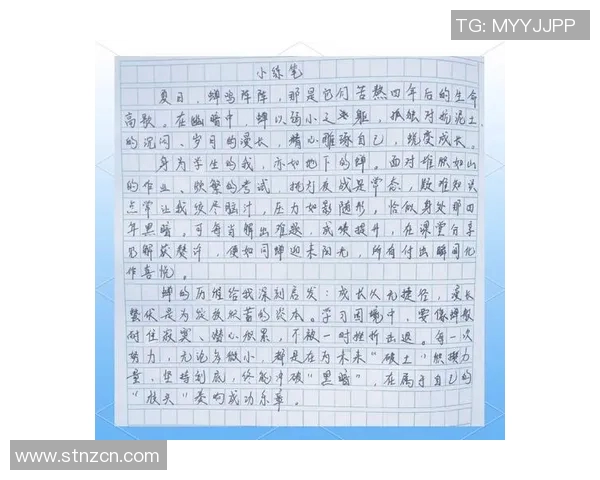 TG: MYYJJPP
小练笔
夏日，蝉鸣阵阵，那是它们苦熬四年后的生命
高歌。在幽暗中，蝉以弱小之躯，孤独对抗泥土
的沉闷、岁月的漫长，精心雕琢自己，蜕变成长。
身为学生的我，亦如地下的蝉。面对堆积如山
的作业、频繁的考试，挑灯夜战是常态，疑难知识
点常让我绞尽脑汁，压力如影随形，恰似身处那四
年黑暗。可每当解出难题，成绩提升，在课堂分享
见解获赞许，便如同蝉迎来阳光，所有付出瞬间化
作喜悦。
蝉的历程给我深刻启发：成长从无捷径，漫长
蛰伏是为绽放积蓄的资本。学习困境中，要像蝉般
耐住寂寞、潜心积累，不被一时挫折击退。每一次
努力，无论多微小，都是在为未来“破土”积攒力
量，坚持到底，终能冲破“黑暗”，在属于自己的
“枝头”奏响成功乐章。
www.stnzcn.com